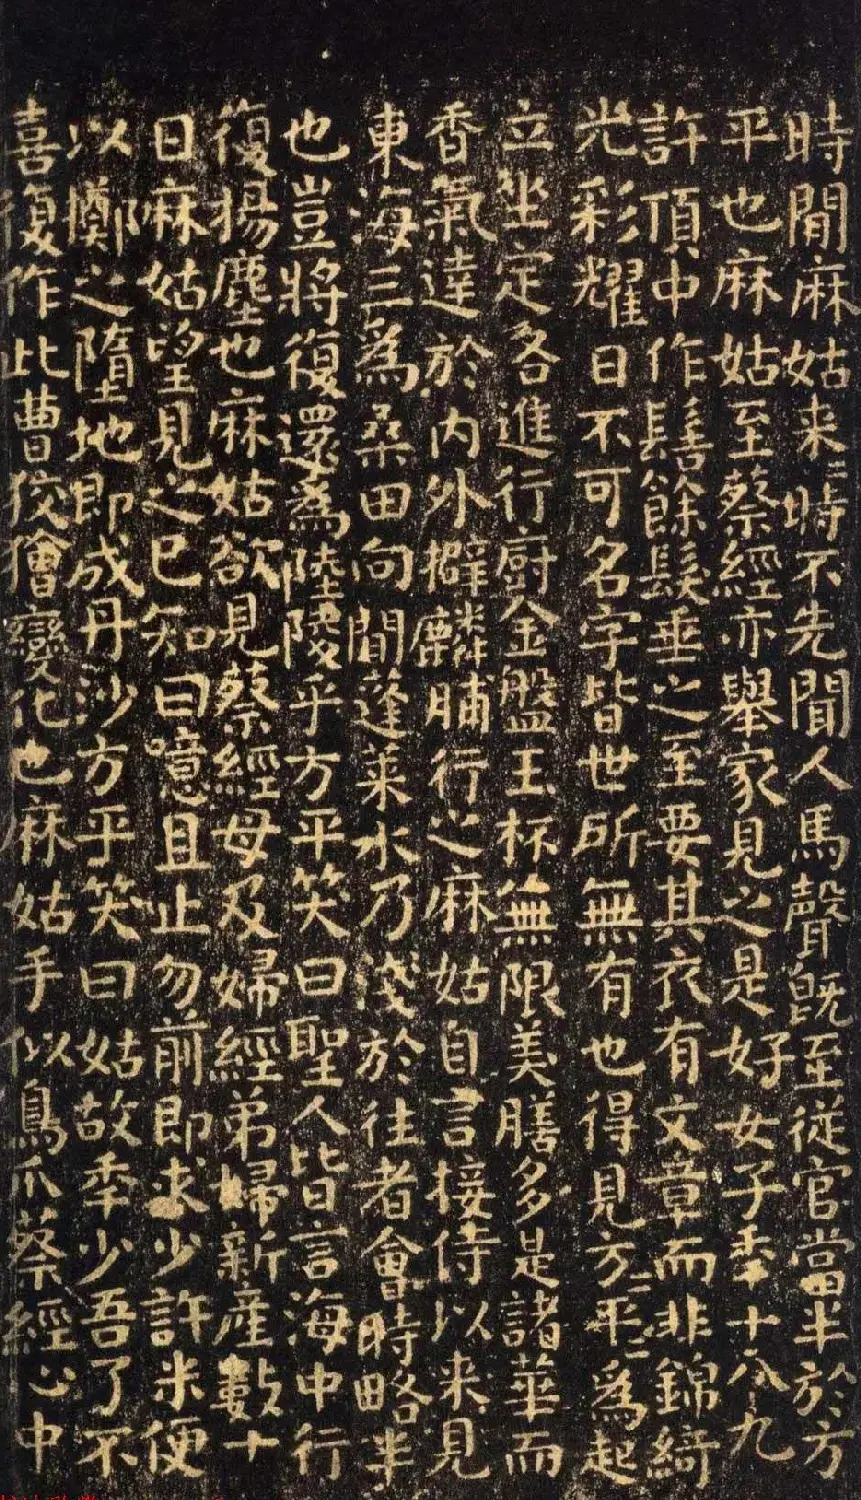 時間麻姑来〻時不先聞人馬聲既至從官當半於方
平也麻姑至蔡經亦舉家見之是好女子年十八九
許頂中作髻餘髮垂之至要其衣有文章而非錦綺
光彩耀日不可名字皆世所無有也得見方〻平〻為起
立坐定各進行厨金盤玉杯無限美膳多是諸華而
香氣達於內外擗麟脯行之麻姑自言接侍以来見
東海三為桑田向間蓬莱水乃淺於往者會時略半
也豈將復還為陸陵乎方平笑曰聖人皆言海中行
復揚塵也麻姑欲見蔡經母及婦經弟婦新產數十
日麻姑望見之已知曰噫且止勿前即求少許米便
以擲之墮地即成丹沙方平笑曰姑故年少吾了不
喜復作此曹狡獪變化也麻姑手似鳥爪蔡經心中